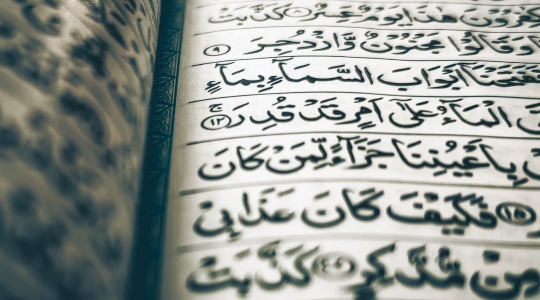 هَٰذَا يَوْمٌ عَسِرٌ ٨ كَذَّبَتْ
وَقَالُوا مَجْنُونٌ وَازْدُجِرَ ٩
فَفَتَحْنَا أَبْوَابَ السَّمَاءِ بِمَاءٍ
الْمَاءُ عَلَىٰ أَمْرٍ قَدْ قُدِرَ ١٢
بِأَعْيُنِنَا جَزَاءً لِّمَنْ كَانَ
١٥ فَكَيْفَ كَانَ عَذَابِي
مِنْ مُّدَّكِرٍ كَذَّبَتْ